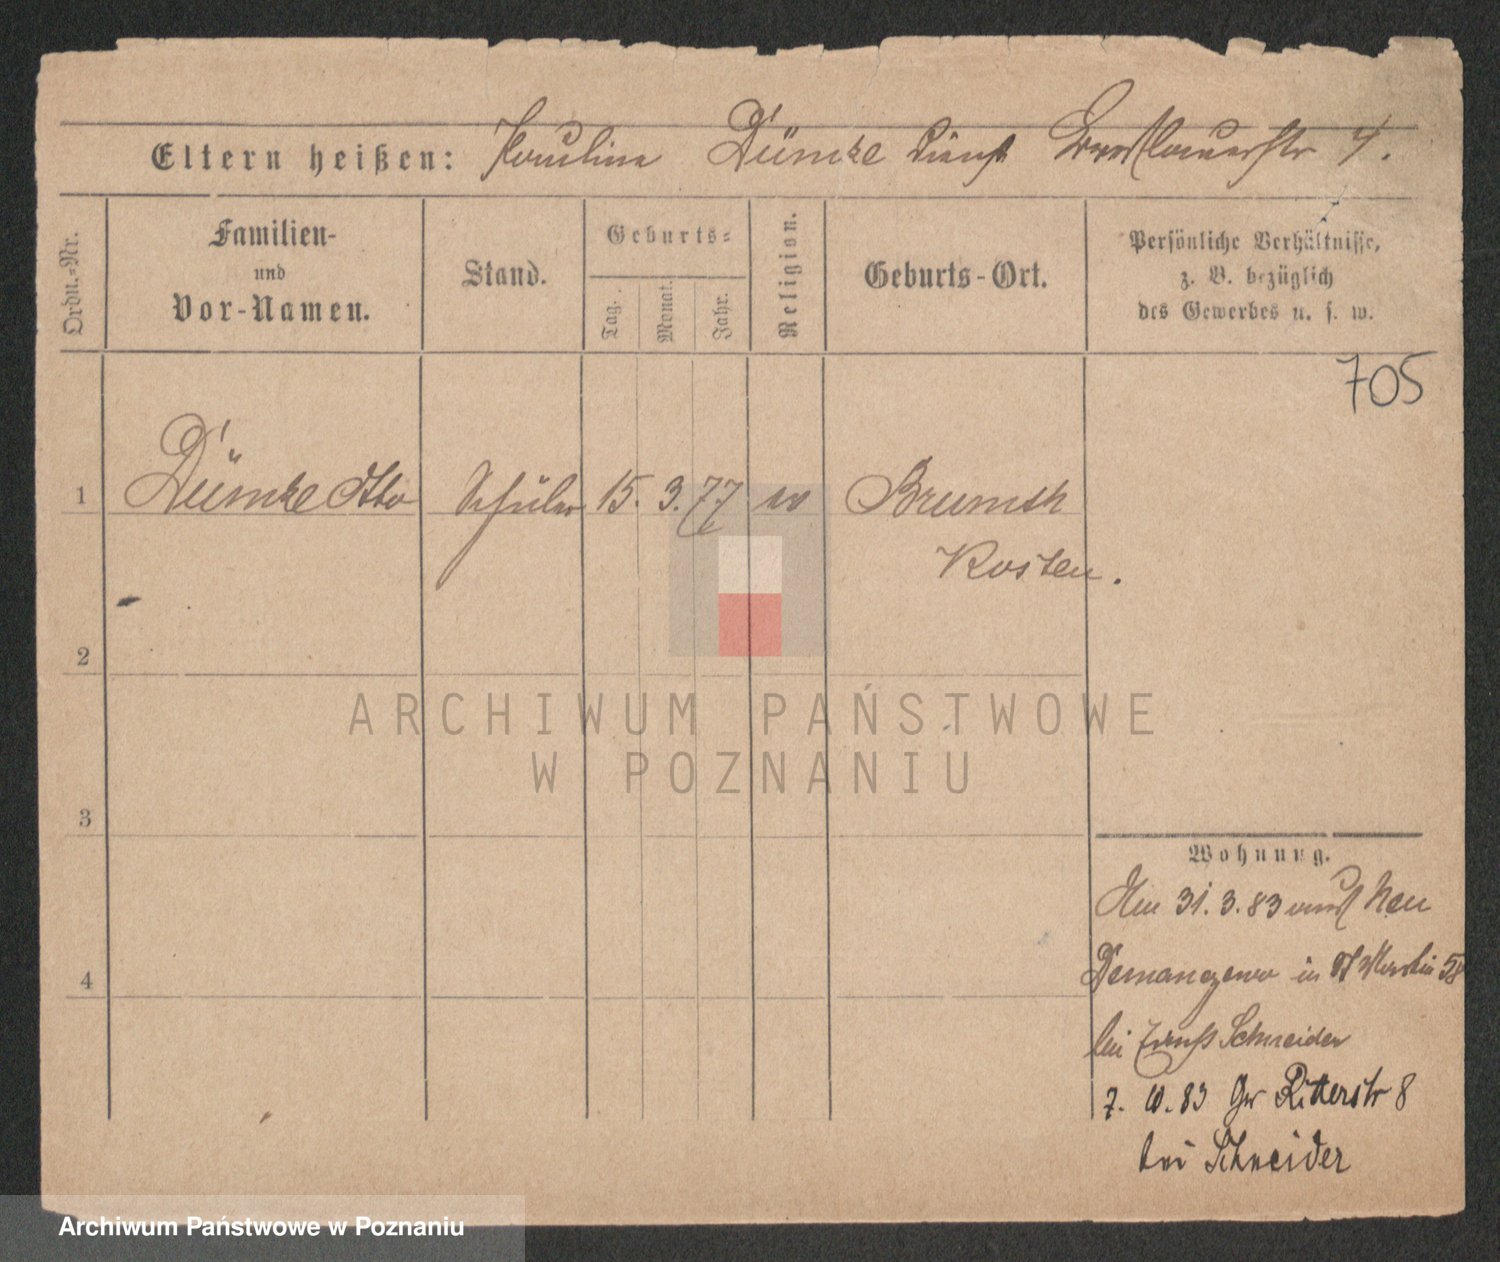 Eltern heißen: Pauline Dümke Dienst Breslauerstr 4.
Ordn.=Nr.
Familien-
und
Vor-Namen.
Stand.
Geburts=
Tag.
Monat.
Jahr.
Religion.
Geburts-Ort.
Persönliche Verhältnisse,
z. B. bezüglich
des Gewerbes u. s. w.
705
1 Dümke Otto Schüler 15. 3. 77
Kosten.
2
ARCHIWUM PAŃSTWOWE
W POZNANIU
3
Wohnung.
31. 3. 83
4
in 58
bei Schneider
7. 10. 83 Gr Ritterstr 8
bei Schneider
Archiwum Państwowe w Poznaniu